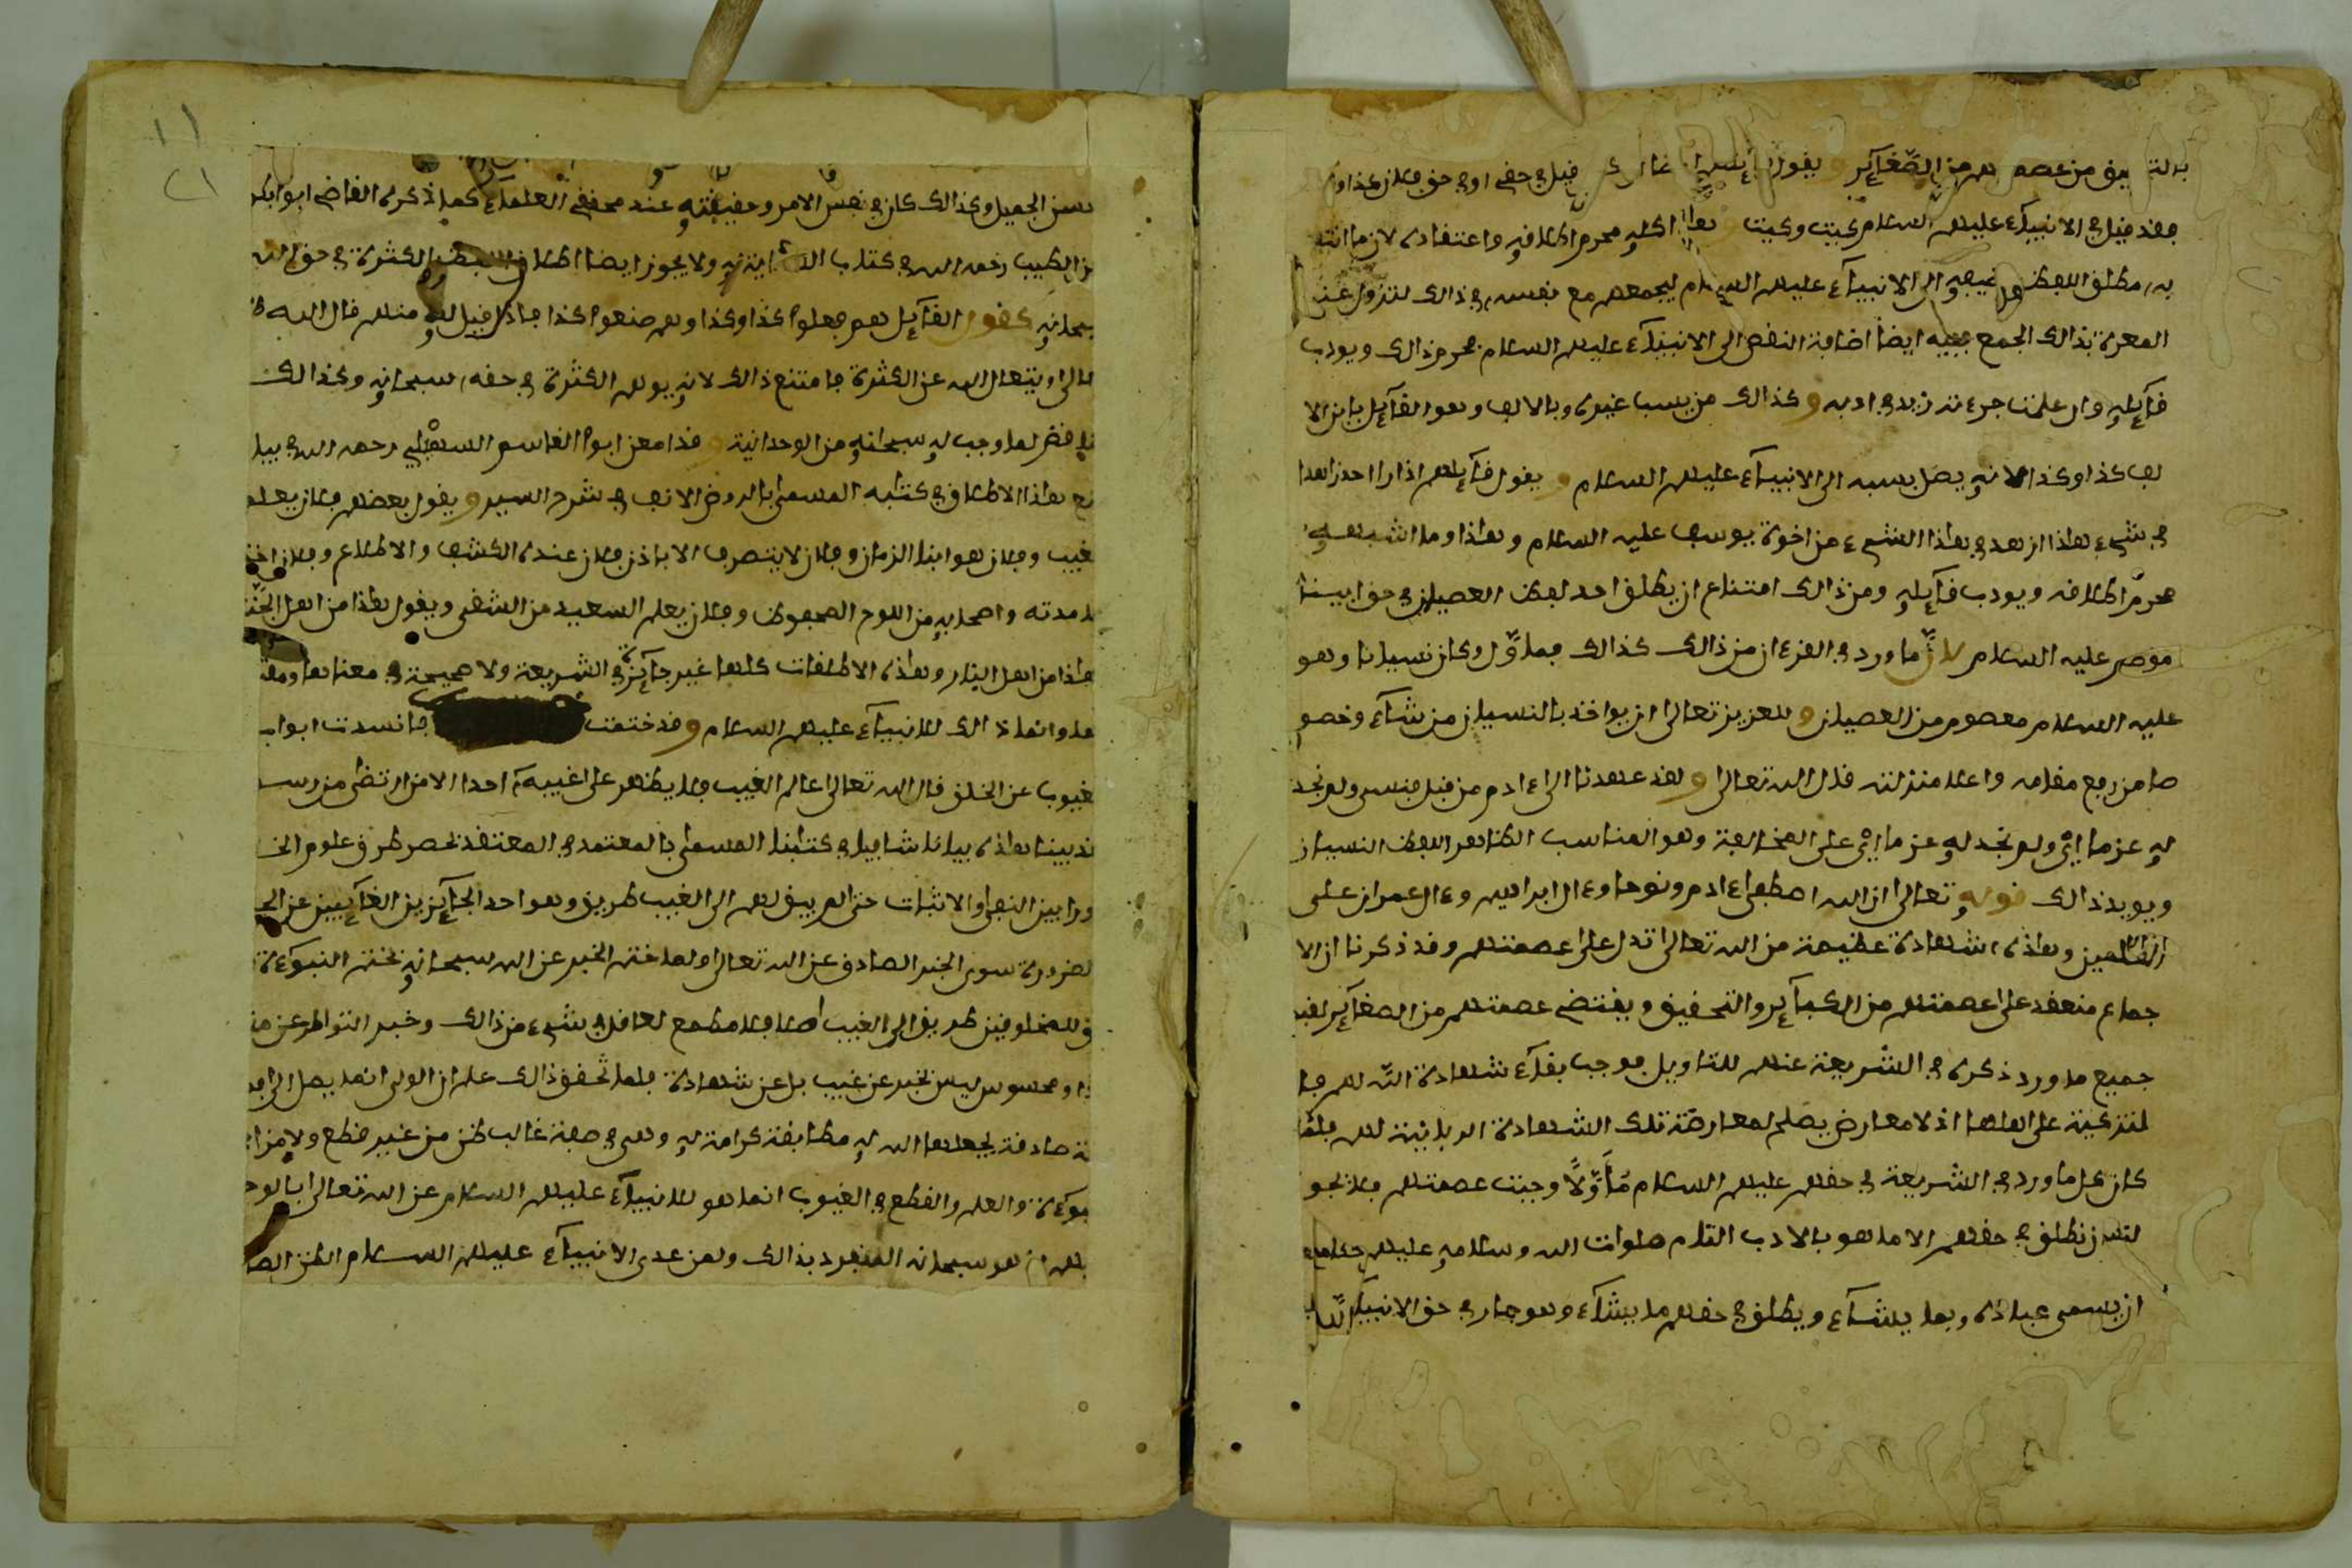 من الصغائر ويقول قيل في حقي او في حق فلان كذا و
فقد قيل في الانبياء عليهم السلام كيت وكيت اطلاقه واعتقاده لان
مطلق اللفظ الى الانبياء عليهم السلام ليجمعهم مع نفسه في ذالك لتزول عنه
المعرة بذالك الجمع ايضا اضافة النقص الى الانبياء عليهم السلام فحرم ذالك ويودب
قائله وان علمت جرءته زيد في ادبه وكذالك من يسب غيره وبالالف وهو القائل يا بن الا
لف كذا وكذا لانه يصل بسبه الى الانبياء عليهم السلام ويقول قائلهم اذا راا احدا زاهدا
في شيء هاذا ازهد في هاذا الشيء من اخوة يوسف عليه السلام وهاذا وما اشبهه
محرم اطلاقه ويودب قائله ومن ذالك امتناع ان يطلق احد لفظ العصيان في حق ابينا
عليه السلام لان ما ورد في القرءان من ذالك كذالك فماول وكان نسيانا وهو
عليه السلام معصوم من العصيان وللعزيز تعالى ان يواخذ بالنسيان من شاء وخصو
صا من رفع مقامه واعلا منزلته قال الله تعالى ولقد عهدنا الى ءادم من قبل فنسى ولم نجد
له عزما اي ولم نجد له عزما اي على المخالفة وهو المناسب الظاهر للفظ النسيان
ويويد ذالك قوله تعالى ان الله اصطفى ءادم ونوحا وءال ابراهيم وءال عمران على
العالمين وهاذه شهادة عظيمة من الله تعالى تدل على عصمتهم وقد ذكرنا ان الا
جماع منعقد على عصمتهم من الكبائر والتحقيق ويقتضي عصمتهم من الصغائر
جميع ما ورد ذكره في الشريعة عنهم للتاويل فوجب بقاء شهادة الله لهم با
لتزكية على اصلها اذ لا معارض يصلح لمعارضة تلك الشهادة الربانية لهم فلما
كان كل ما ورد في الشريعة في حقهم عليهم السلام مأولا وجبت عصمتهم فلا يجو
لنا ان نطلق في حقهم الا ما هو بالادب التام صلوات الله وسلامه عليهم
ان يسمي عباده بما يشاء ويطلق في حقهم ما يشاء وهو جار في حق الانبياء
١١
٢١
الجميل وكذالك كان في نفس الامر وحقيقته عند محققي العلماء كما ذكره القاضي ابو بكر
بن الطيب رحمه الله في كتاب ولا يجوز ايضا اطلاق لفظ الكثرة في حق الله
سبحانه كقول القائل هم فعلوا كذا وكذا وهم صنعوا كذا فاذا قيل له منهم قال الله
او يتعالى الله عن الكثرة فامتنع ذالك لانه يوهم الكثرة في حقه سبحانه وكذالك
لما وجب له سبحانه من الوحدانية وقد معن ابوا القاسم السهيلي رحمه الله في بيا
هاذا الاطلاق في كتابه المسمى بالروض الانف في شرح السير ويقول بعضهم فلان يعلم
الغيب وفلان هو ابنا الزمان وفلان لا يتصرف الا باذن فلان عنده الكشف والاطلاع وفلان
مدته واصحابه من اللوح المحفوظ وفلان يعلم السعيد من الشقي ويقول هاذا من اهل الجنة
هاذا من اهل النار وهاذه الاطلاقات كلها غير جائزة في الشريعة ولا صحيحة في معناها
وانما ذالك للانبياء عليهم السلام وقد ختمت فانسدت ابواب
الغيوب عن الخلق قال الله تعالى عالم الغيب فلا يظهر على غيبه احدا الا من ارتضى من رسو
بينا هاذه بيانا شافيا في كتابنا المسمى بالمعتمد في المعتقد بحصر طرق علوم
بين النفي والاثبات حتى لم يبق لهم الى الغيب طريق وهو احد الجائزين الغائبين عن
الضرورة سوى الخبر الصادق عن الله تعالى ولما ختم الخبر عن الله سبحانه بختم النبوءة
للمخلوقين طريق الى الغيب اصلا فلا مطمع لعاقل في شيء من ذالك وخبر التواتر عن
ومحسوس ليس بخبر عن غيب بل عن شهادة فلما تحقق ذالك علم ان الولي انما يصل الى
صادقة يجعلها الله له مطابقة كرامة له وهي في صفة غالب ظن من غير قطع ولا
والعلم والقطع في الغيوب انما هو للانبياء عليهم السلام عن الله تعالى بالوحي
هو سبحانه المنفرد بذالك ولمن عدى الانبياء عليهم السلام الظن